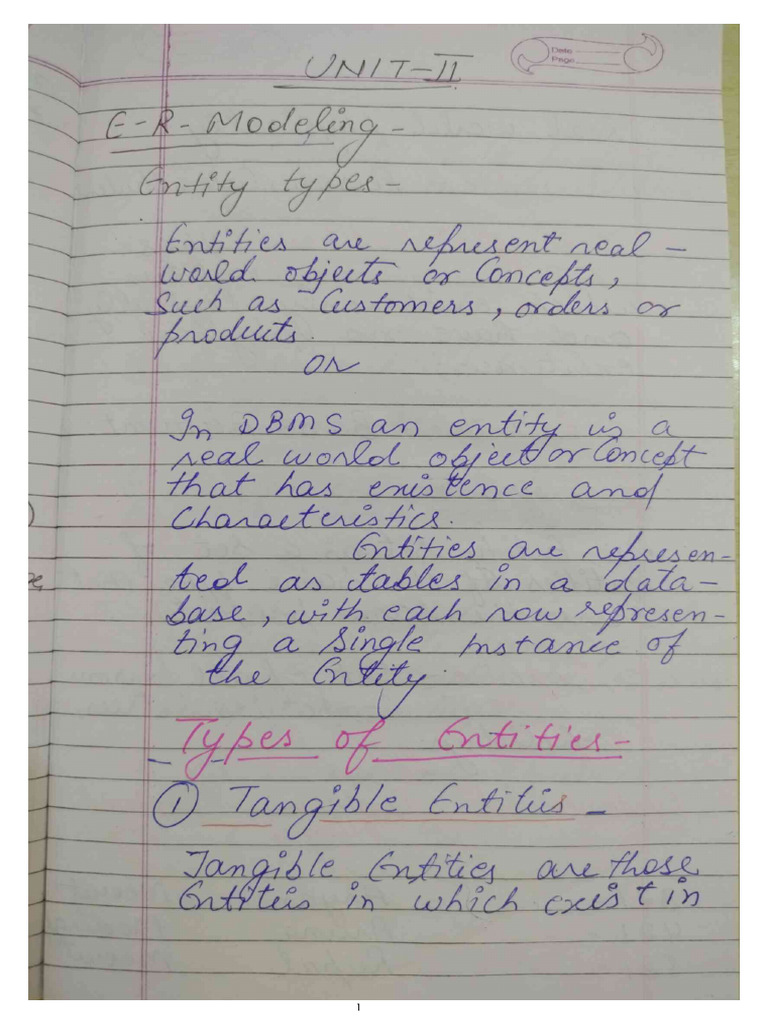 UNIT-II
Date
Page
E-R-Modeling-
Entity types-
Entities are represent real-
world objects or Concepts,
Such as Customers, orders or
products.
OR
In DBMS an entity is a
real world object or Concept
that has existence and
Characteristics.
Entities are represen-
ted as tables in a data-
base, with each row represen-
ting a Single Instance of
the Entity.
Types of Entities-
① Tangible Entities-
Tangible Entities are those
Entities in which exist in
1